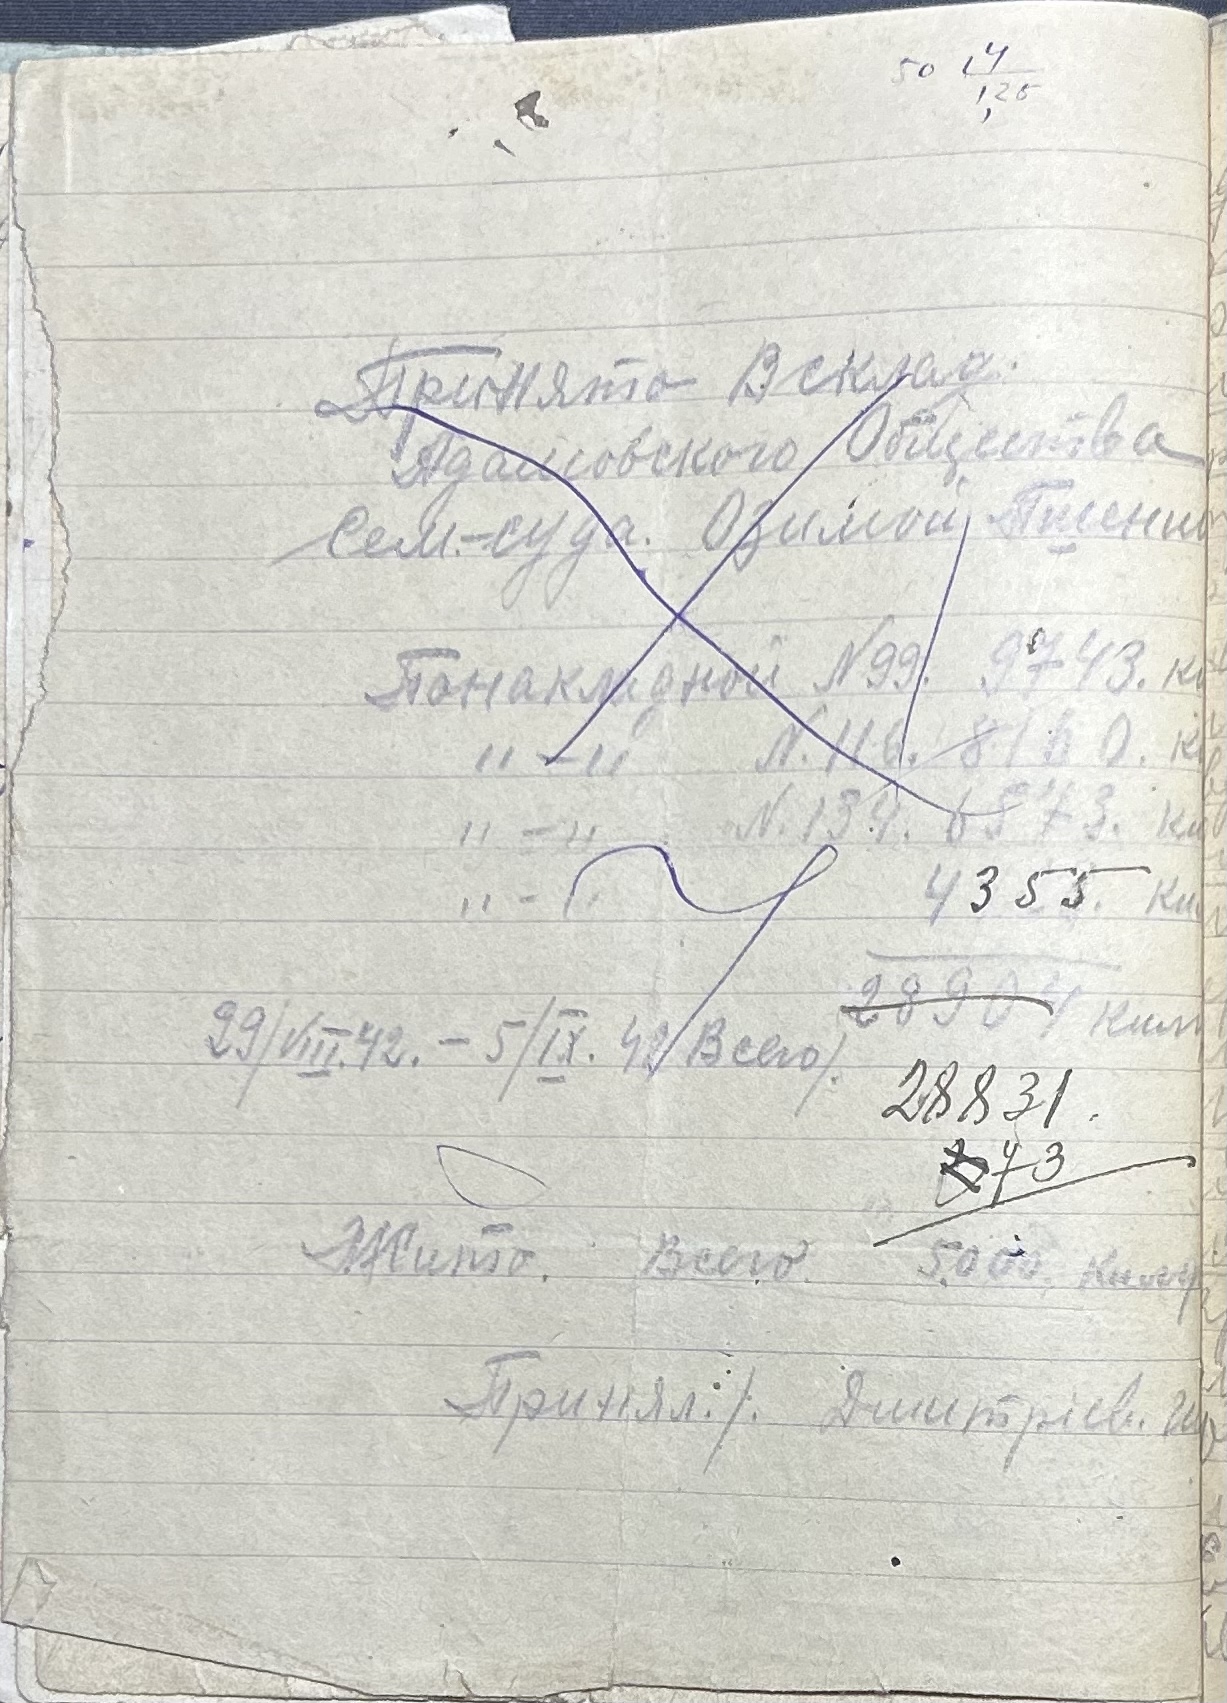 50 4
1,25
Принято В склад.
Адамовского Общества
сем.-суда. Озимой Пшени
Понакладной N 99. 9743. к
" - " N. 116. 8160. к
" - " N. 134. 6573. ки
" - " 4355 ки
28904 килг
29/VIII.42. - 5/IX. 42 Всего/.
28831.
73
Жито. Всего 5.000. килгр
Принял:/. Дмитріев.